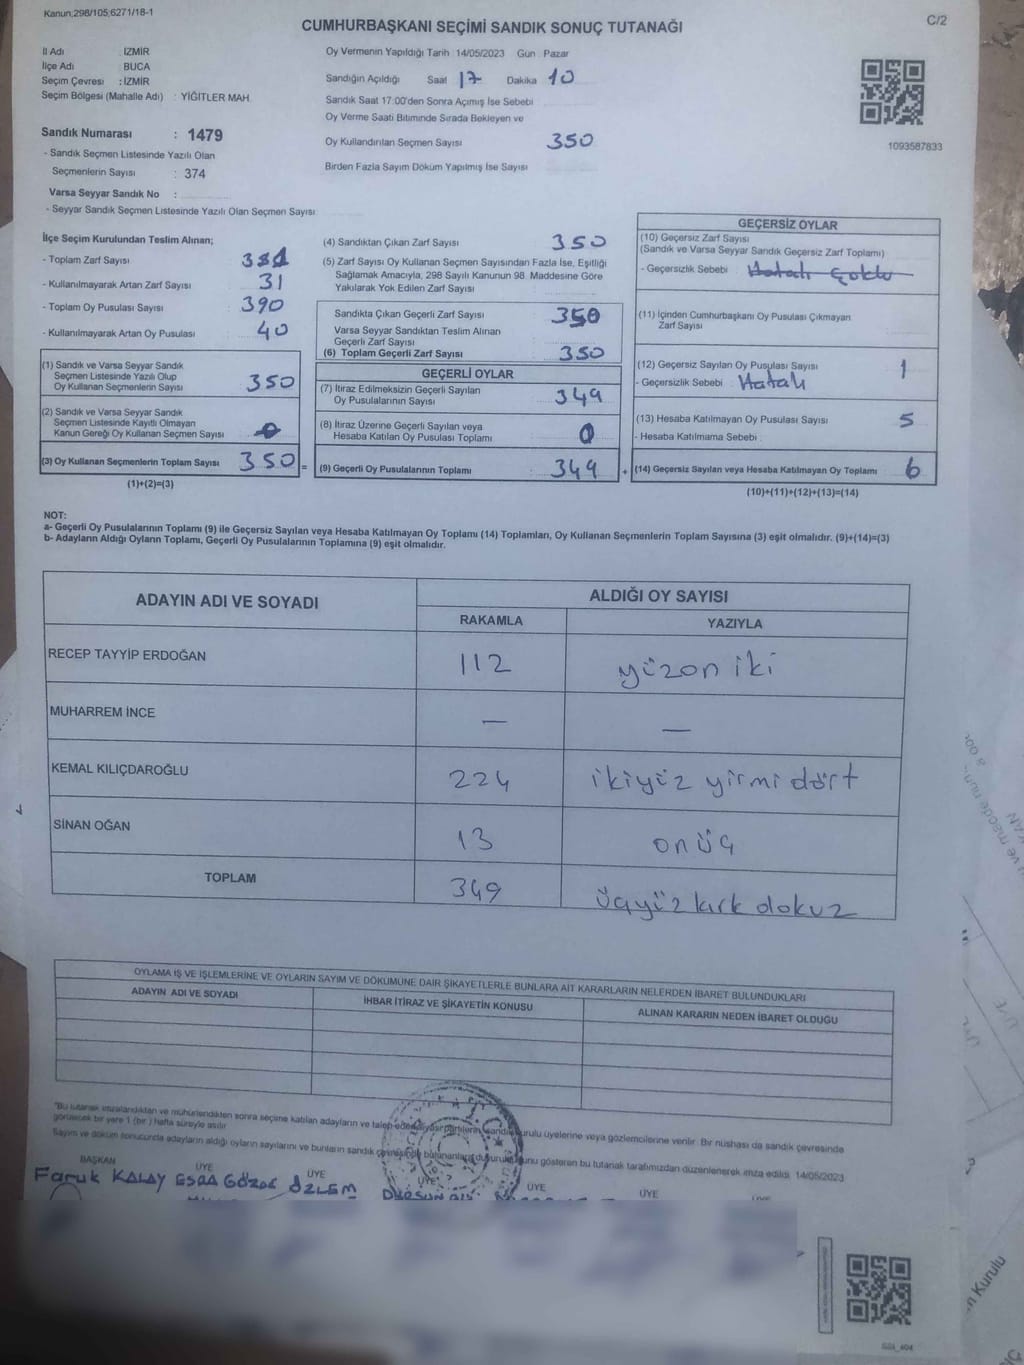 Kanun;298/105;6271/18-1
CUMHURBAŞKANI SEÇİMİ SANDIK SONUÇ TUTANAĞI
C/2
İl Adı : İZMİR
İlçe Adı : BUCA
Seçim Çevresi : İZMİR
Seçim Bölgesi (Mahalle Adı) : YİĞİTLER MAH
Sandık Numarası : 1479
- Sandık Seçmen Listesinde Yazılı Olan
Seçmenlerin Sayısı : 374
Varsa Seyyar Sandık No :
- Seyyar Sandık Seçmen Listesinde Yazılı Olan Seçmen Sayısı
Oy Vermenin Yapıldığı Tarih 14/05/2023 Gün Pazar
Sandığın Açıldığı Saat 17 Dakika 10
Sandık Saat 17:00'den Sonra Açmış İse Sebebi
Oy Verme Saati Bitiminde Sırada Bekleyen ve
Oy Kullandırılan Seçmen Sayısı 350
Birden Fazla Sayım Döküm Yapılmış İse Sayısı
1093587833
İlçe Seçim Kurulundan Teslim Alınan;
- Toplam Zarf Sayısı 381
- Kullanılmayarak Artan Zarf Sayısı 31
- Toplam Oy Pusulası Sayısı 390
- Kullanılmayarak Artan Oy Pusulası 40
(1) Sandık ve Varsa Seyyar Sandık
Seçmen Listesinde Yazılı Olup
Oy Kullanan Seçmenlerin Sayısı 350
(2) Sandık ve Varsa Seyyar Sandık
Seçmen Listesinde Kayıtlı Olmayan
Kanun Gereği Oy Kullanan Seçmen Sayısı 0
(3) Oy Kullanan Seçmenlerin Toplam Sayısı 350 =
(1)+(2)=(3)
(4) Sandıktan Çıkan Zarf Sayısı 350
(5) Zarf Sayısı Oy Kullanan Seçmen Sayısından Fazla İse, Eşitliği
Sağlamak Amacıyla, 298 Sayılı Kanunun 98. Maddesine Göre
Yakılarak Yok Edilen Zarf Sayısı
Sandıkta Çıkan Geçerli Zarf Sayısı 350
Varsa Seyyar Sandıktan Teslim Alınan
Geçerli Zarf Sayısı
(6) Toplam Geçerli Zarf Sayısı 350
GEÇERLİ OYLAR
(7) İtiraz Edilmeksizin Geçerli Sayılan
Oy Pusulalarının Sayısı 349
(8) İtiraz Üzerine Geçerli Sayılan veya
Hesaba Katılan Oy Pusulası Toplamı 0
(9) Geçerli Oy Pusulalarının Toplamı : 349 +
GEÇERSİZ OYLAR
(10) Geçersiz Zarf Sayısı
(Sandık ve Varsa Seyyar Sandık Geçersiz Zarf Toplamı)
- Geçersizlik Sebebi : Hatalı Çoklu
(11) İçinden Cumhurbaşkanı Oy Pusulası Çıkmayan
Zarf Sayısı
(12) Geçersiz Sayılan Oy Pusulası Sayısı 1
- Geçersizlik Sebebi : Hatalı
(13) Hesaba Katılmayan Oy Pusulası Sayısı 5
- Hesaba Katılmama Sebebi :
(14) Geçersiz Sayılan veya Hesaba Katılmayan Oy Toplamı 6
(10)+(11)+(12)+(13)=(14)
NOT:
a- Geçerli Oy Pusulalarının Toplamı (9) ile Geçersiz Sayılan veya Hesaba Katılmayan Oy Toplamı (14) Toplamları, Oy Kullanan Seçmenlerin Toplam Sayısına (3) eşit olmalıdır. (9)+(14)=(3)
b- Adayların Aldığı Oyların Toplamı, Geçerli Oy Pusulalarının Toplamına (9) eşit olmalıdır.
ADAYIN ADI VE SOYADI
ALDIĞI OY SAYISI
RAKAMLA YAZIYLA
RECEP TAYYİP ERDOĞAN 112 yüzon iki
MUHARREM İNCE — —
KEMAL KILIÇDAROĞLU 224 ikiyüz yirmi dört
SİNAN OĞAN 13 onüç
TOPLAM 349 üçyüz kırk dokuz
OYLAMA İŞ VE İŞLEMLERİNE VE OYLARIN SAYIM VE DÖKÜMÜNE DAİR ŞİKAYETLERLE BUNLARA AİT KARARLARIN NELERDEN İBARET BULUNDUKLARI
ADAYIN ADI VE SOYADI İHBAR İTİRAZ VE ŞİKAYETİN KONUSU ALINAN KARARIN NEDEN İBARET OLDUĞU
"Bu tutanak imzalandıktan ve mühürlendikten sonra seçime katılan adayların ve talep eden siyasi partilerin sandık kurulu üyelerine veya gözlemcilerine verilir. Bir nüshası da sandık çevresinde
görülecek bir yere 1 (bir ) hafta süreyle asılır
Sayım ve döküm sonucunda adayların aldığı oyların sayılarını ve bunların sandık çevresinde bulunanlara duyurulduğunu gösteren bu tutanak tarafımızdan düzenlenerek imza edildi. 14/05/2023
BAŞKAN ÜYE ÜYE ÜYE ÜYE ÜYE
Faruk KALAY ESRA ÖZLEM
n Kurulu